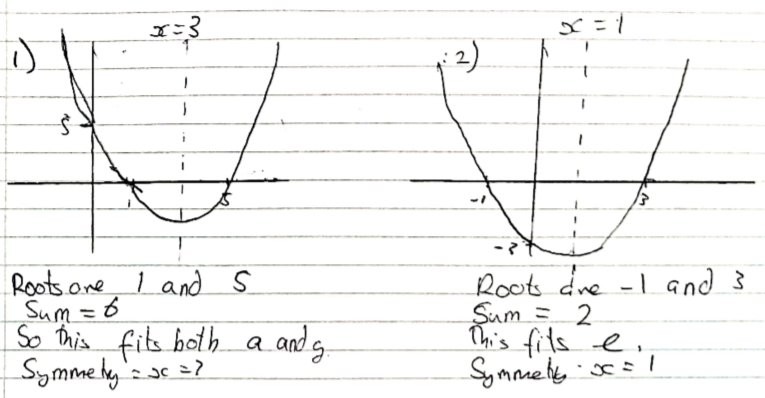 1)
x=3
5
1
5
Roots are 1 and 5
Sum = 6
So this fits both a and g
Symmetry = x =3
2)
x = 1
-1
3
-3
Roots are -1 and 3
Sum = 2
This fits e.
Symmetry x = 1